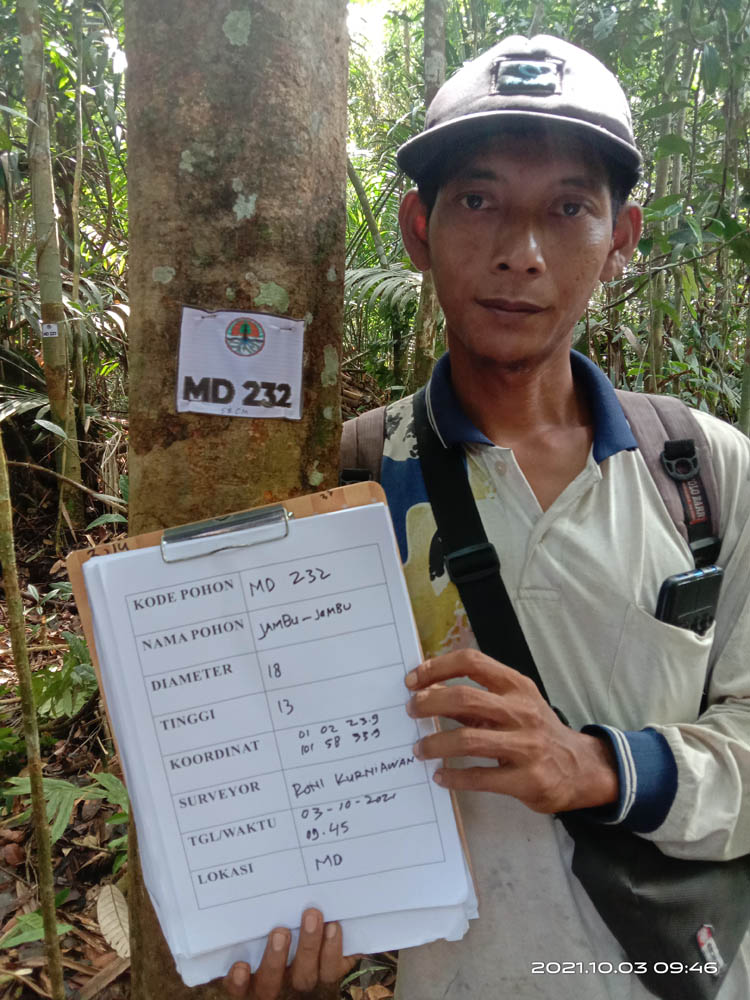 MD 232
KODE POHON MD 232
NAMA POHON JAMBU-JAMBU
DIAMETER 18
TINGGI 13
KOORDINAT 01 02 23.9
101 58 33.9
SURVEYOR RONI KURNIAWAN
TGL/WAKTU 03-10-2021
09.45
LOKASI MD
2021.10.03 09:46